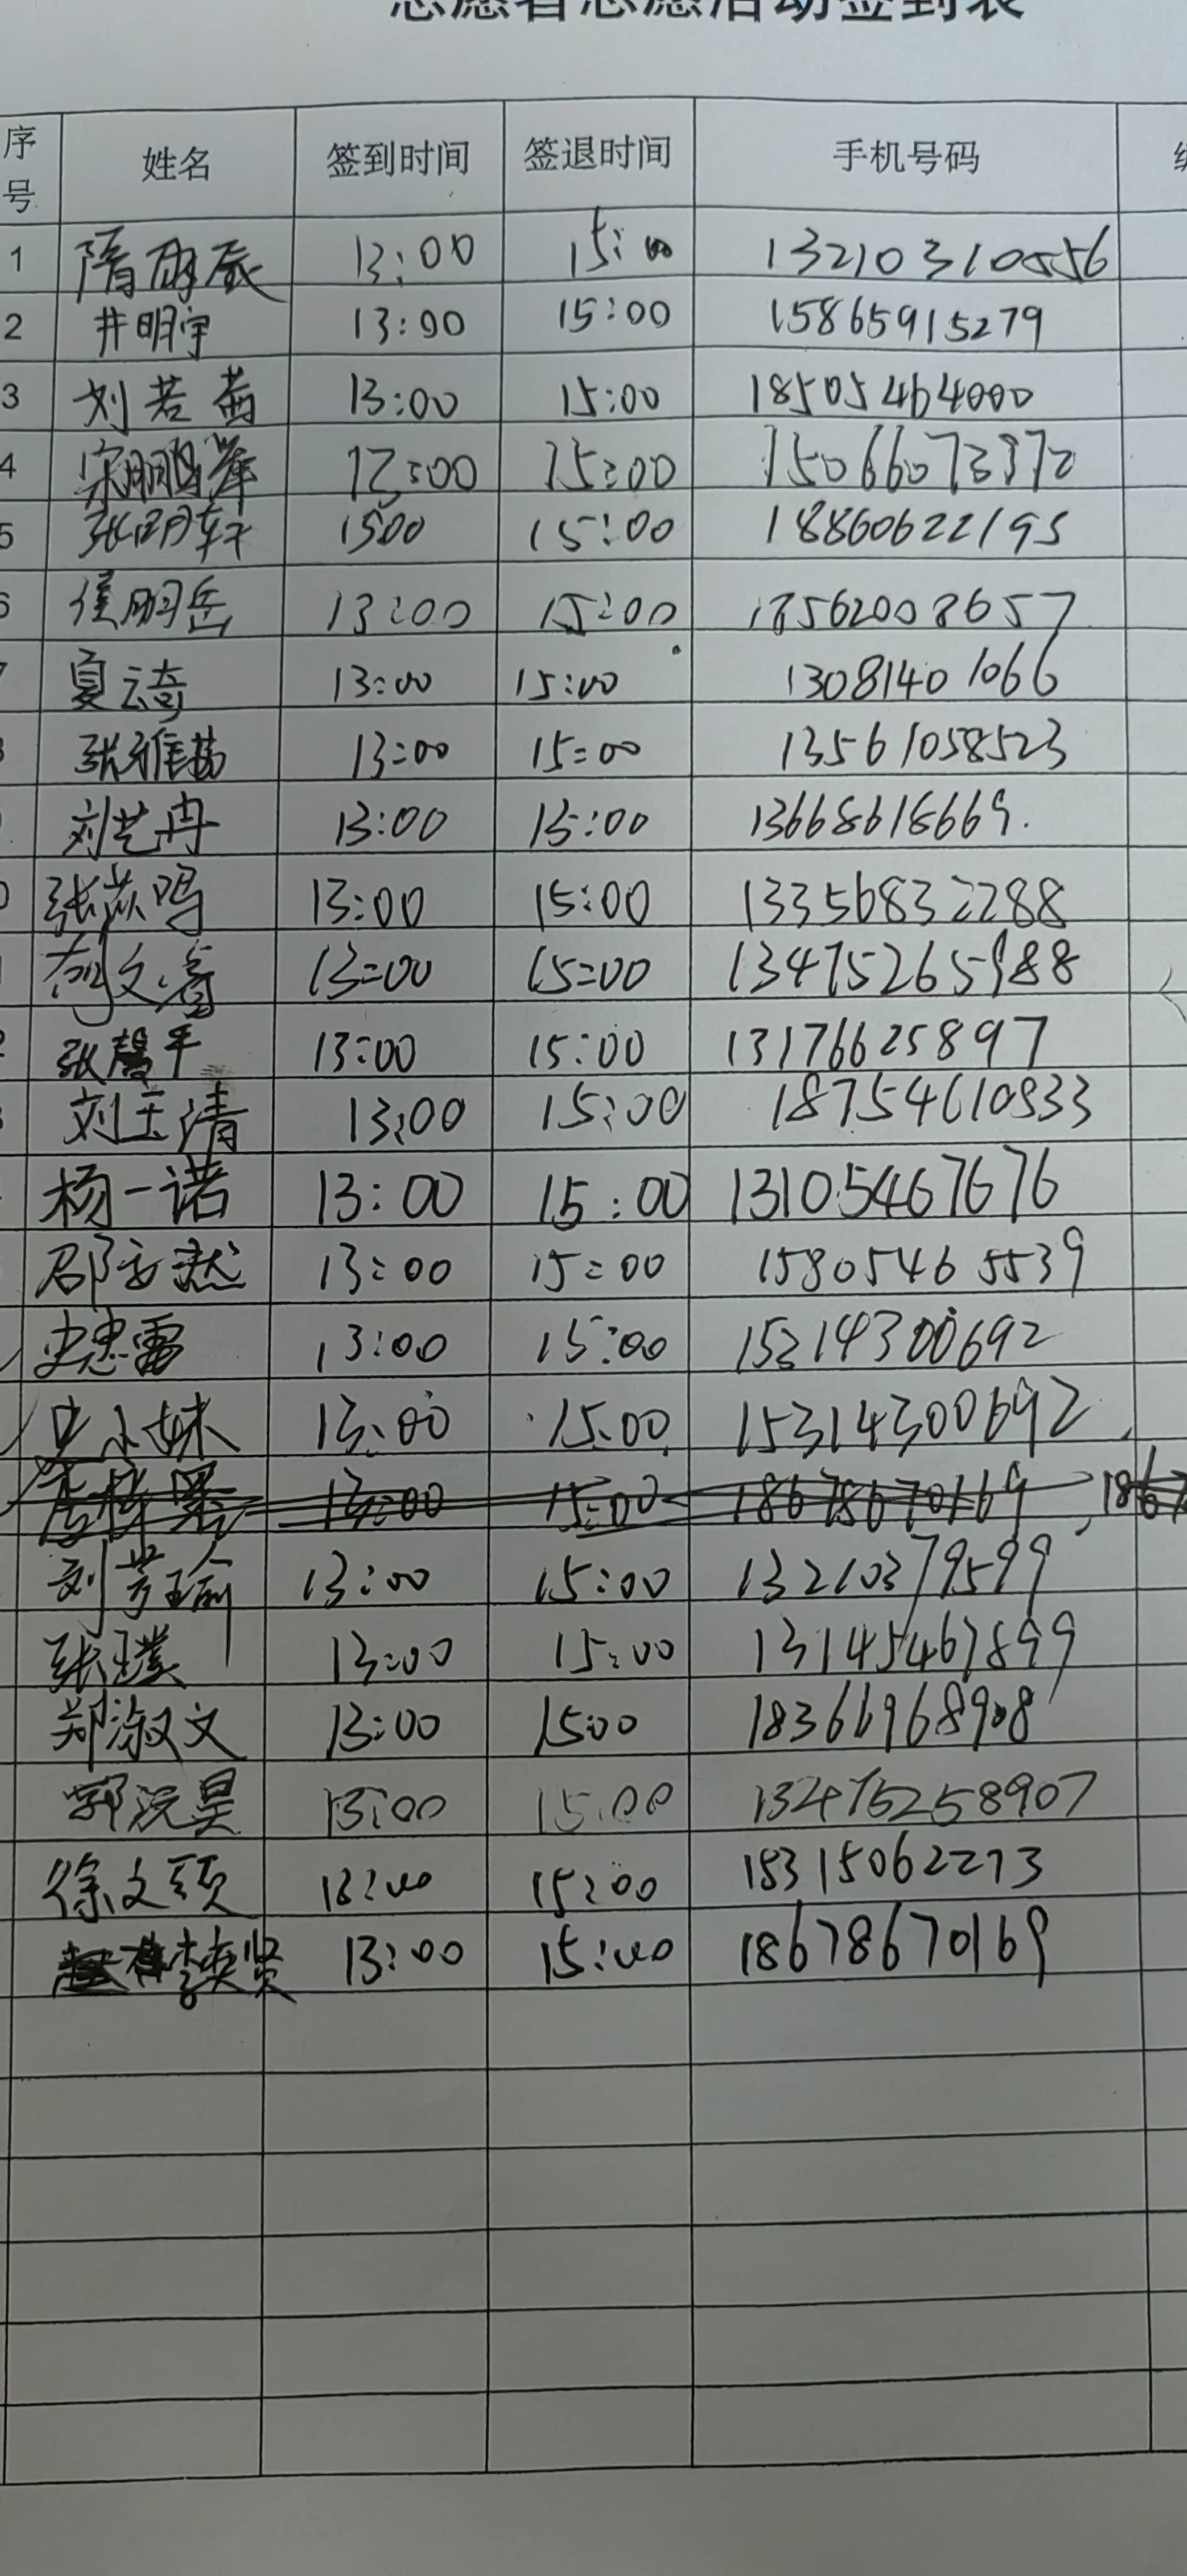 志愿者志愿活动签到表
序号 姓名 签到时间 签退时间 手机号码
1 隋 13:00 15:00
2 井明宇 13:00 15:00 15865915279
3 刘若茜 13:00 15:00 18505464000
4 宋鹏 15:00
5 张明轩 1500 15:00 18860622195
侯明岳 13:00 15:00 18562008657
夏云琦 13:00 15:00 13081401066
张雅茹 13:00 15:00 13561058523
刘艺冉 13:00 15:00 13668618669.
张 鸣 13:00 15:00 13356832288
文 13:00 15:00 13475265988
张馨 13:00 15:00 13176625897
刘玉清 13:00 15:00 18754610833
杨一诺 13:00 15:00 13105467676
邵 然 13:00 15:00 15805465539
史忠雷 13:00 15:00 15314300692
史小妹 13:00 15:00 15314300692
13:00 15:00 18678670169 , 1867
刘芳瑜 13:00 15:00 13210379599
张璞 13:00 15:00 13145467899
郑淑文 13:00 1500 18366968908
郭沅昊 13:00 15:00 13475258907
徐文硕 13:00 15:00 18315062273
李奕贤 13:00 15:00 18678670169